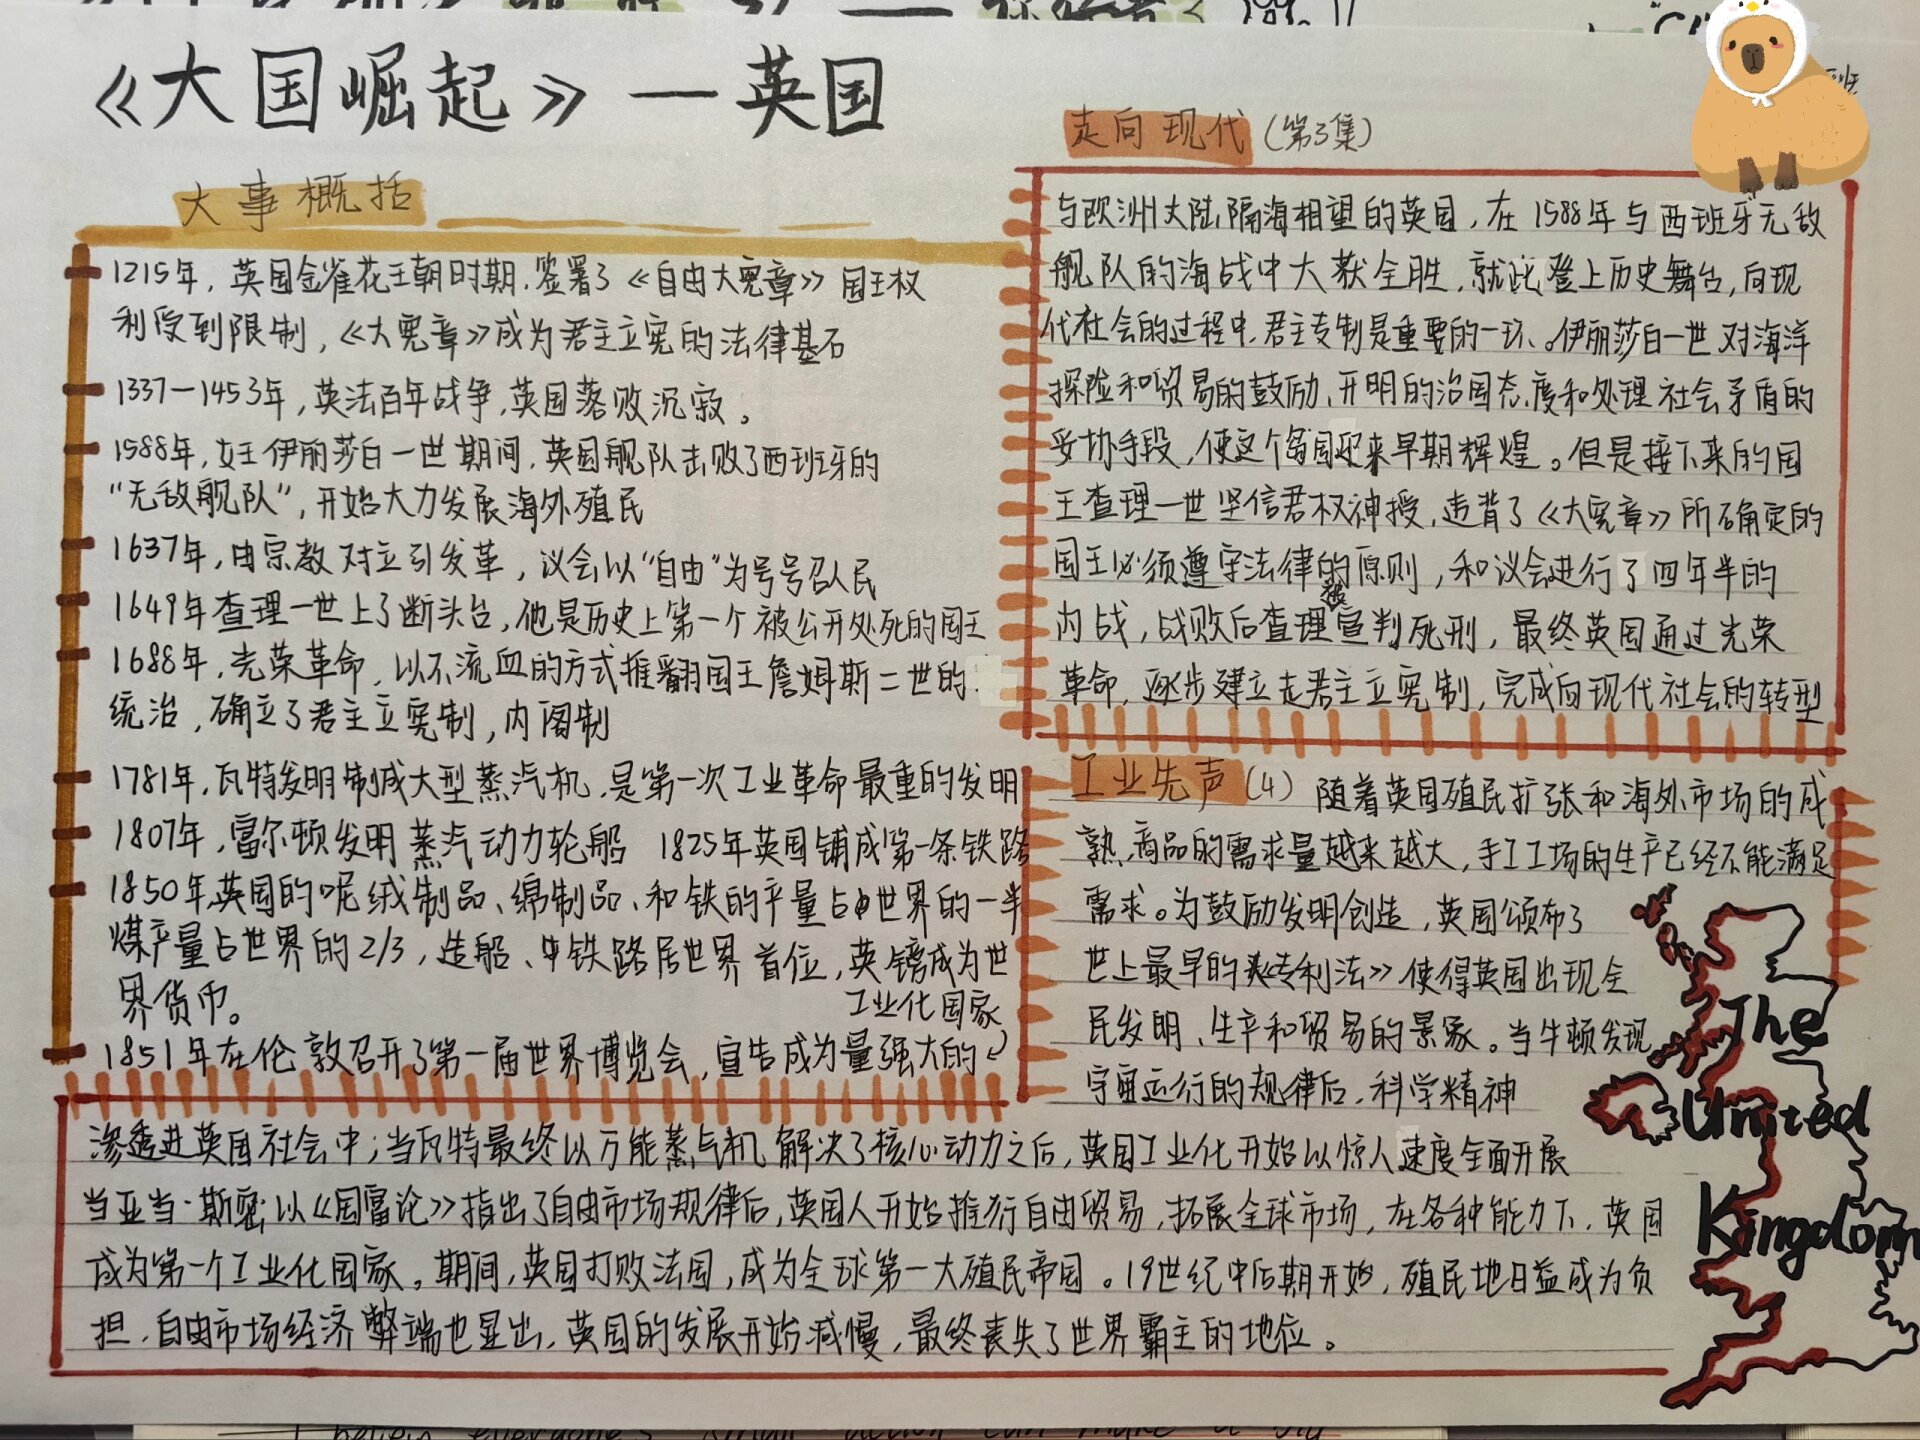 《大国崛起》—英国
大事概括
1215年，英国金雀花王朝时期，签署了《自由大宪章》国王权
利受到限制，《大宪章》成为君主立宪的法律基石
1337—1453年，英法百年战争，英国落败沉寂。
1588年，女王伊丽莎白一世期间，英国舰队击败了西班牙的
“无敌舰队”，开始大力发展海外殖民
1637年，由宗教对立引发革，议会以“自由”为号号召人民
1649年查理一世上了断头台，他是历史上第一个被公开处死的国王
1688年，光荣革命，以不流血的方式推翻国王詹姆斯二世的
统治，确立了君主立宪制，内阁制
1781年，瓦特发明制成大型蒸汽机，是第一次工业革命最重的发明
1807年，富尔顿发明蒸汽动力轮船 1825年英国铺成第一条铁路
1850年英国的呢绒制品、绵制品、和铁的产量占世界的一半
煤产量占世界的2/3，造船、中铁路居世界首位，英镑成为世
界货币。
工业化国家
1851年在伦敦召开了第一届世界博览会，宣告成为量强大的
走向现代(第3集)
与欧洲大陆隔海相望的英国，在1588年与西班牙无敌
舰队的海战中大获全胜，就此登上历史舞台，向现
代社会的过程中，君主专制是重要的一环。伊丽莎白一世对海洋
探险和贸易的鼓励、开明的治国态度和处理社会矛盾的
妥协手段，使这个岛国迎来早期辉煌。但是接下来的国
王查理一世坚信君权神授，违背了《大宪章》所确定的
国王必须遵守法律的原则，和议会进行了四年半的
内战，战败后查理被宣判死刑，最终英国通过光荣
革命，逐步建立走君主立宪制，完成向现代社会的转型
工业先声(4) 随着英国殖民扩张和海外市场的成
熟，商品的需求量越来越大，手工工场的生产已经不能满足
需求。为鼓励发明创造，英国颁布了
世上最早的《专利法》使得英国出现全
民发明、生产和贸易的景象。当牛顿发现
宇宙运行的规律后，科学精神
渗透进英国社会中；当瓦特最终以万能蒸气机解决了核心动力之后，英国工业化开始以惊人速度全面开展
当亚当·斯密以《国富论》指出了自由市场规律后，英国人开始推行自由贸易，拓展全球市场，在各种能力下，英国
成为第一个工业化国家。期间，英国打败法国，成为全球第一大殖民帝国。19世纪中后期开始，殖民地日益成为负
担，自由市场经济弊端也显出，英国的发展开始减慢，最终丧失了世界霸主的地位。
The
United
Kingdom